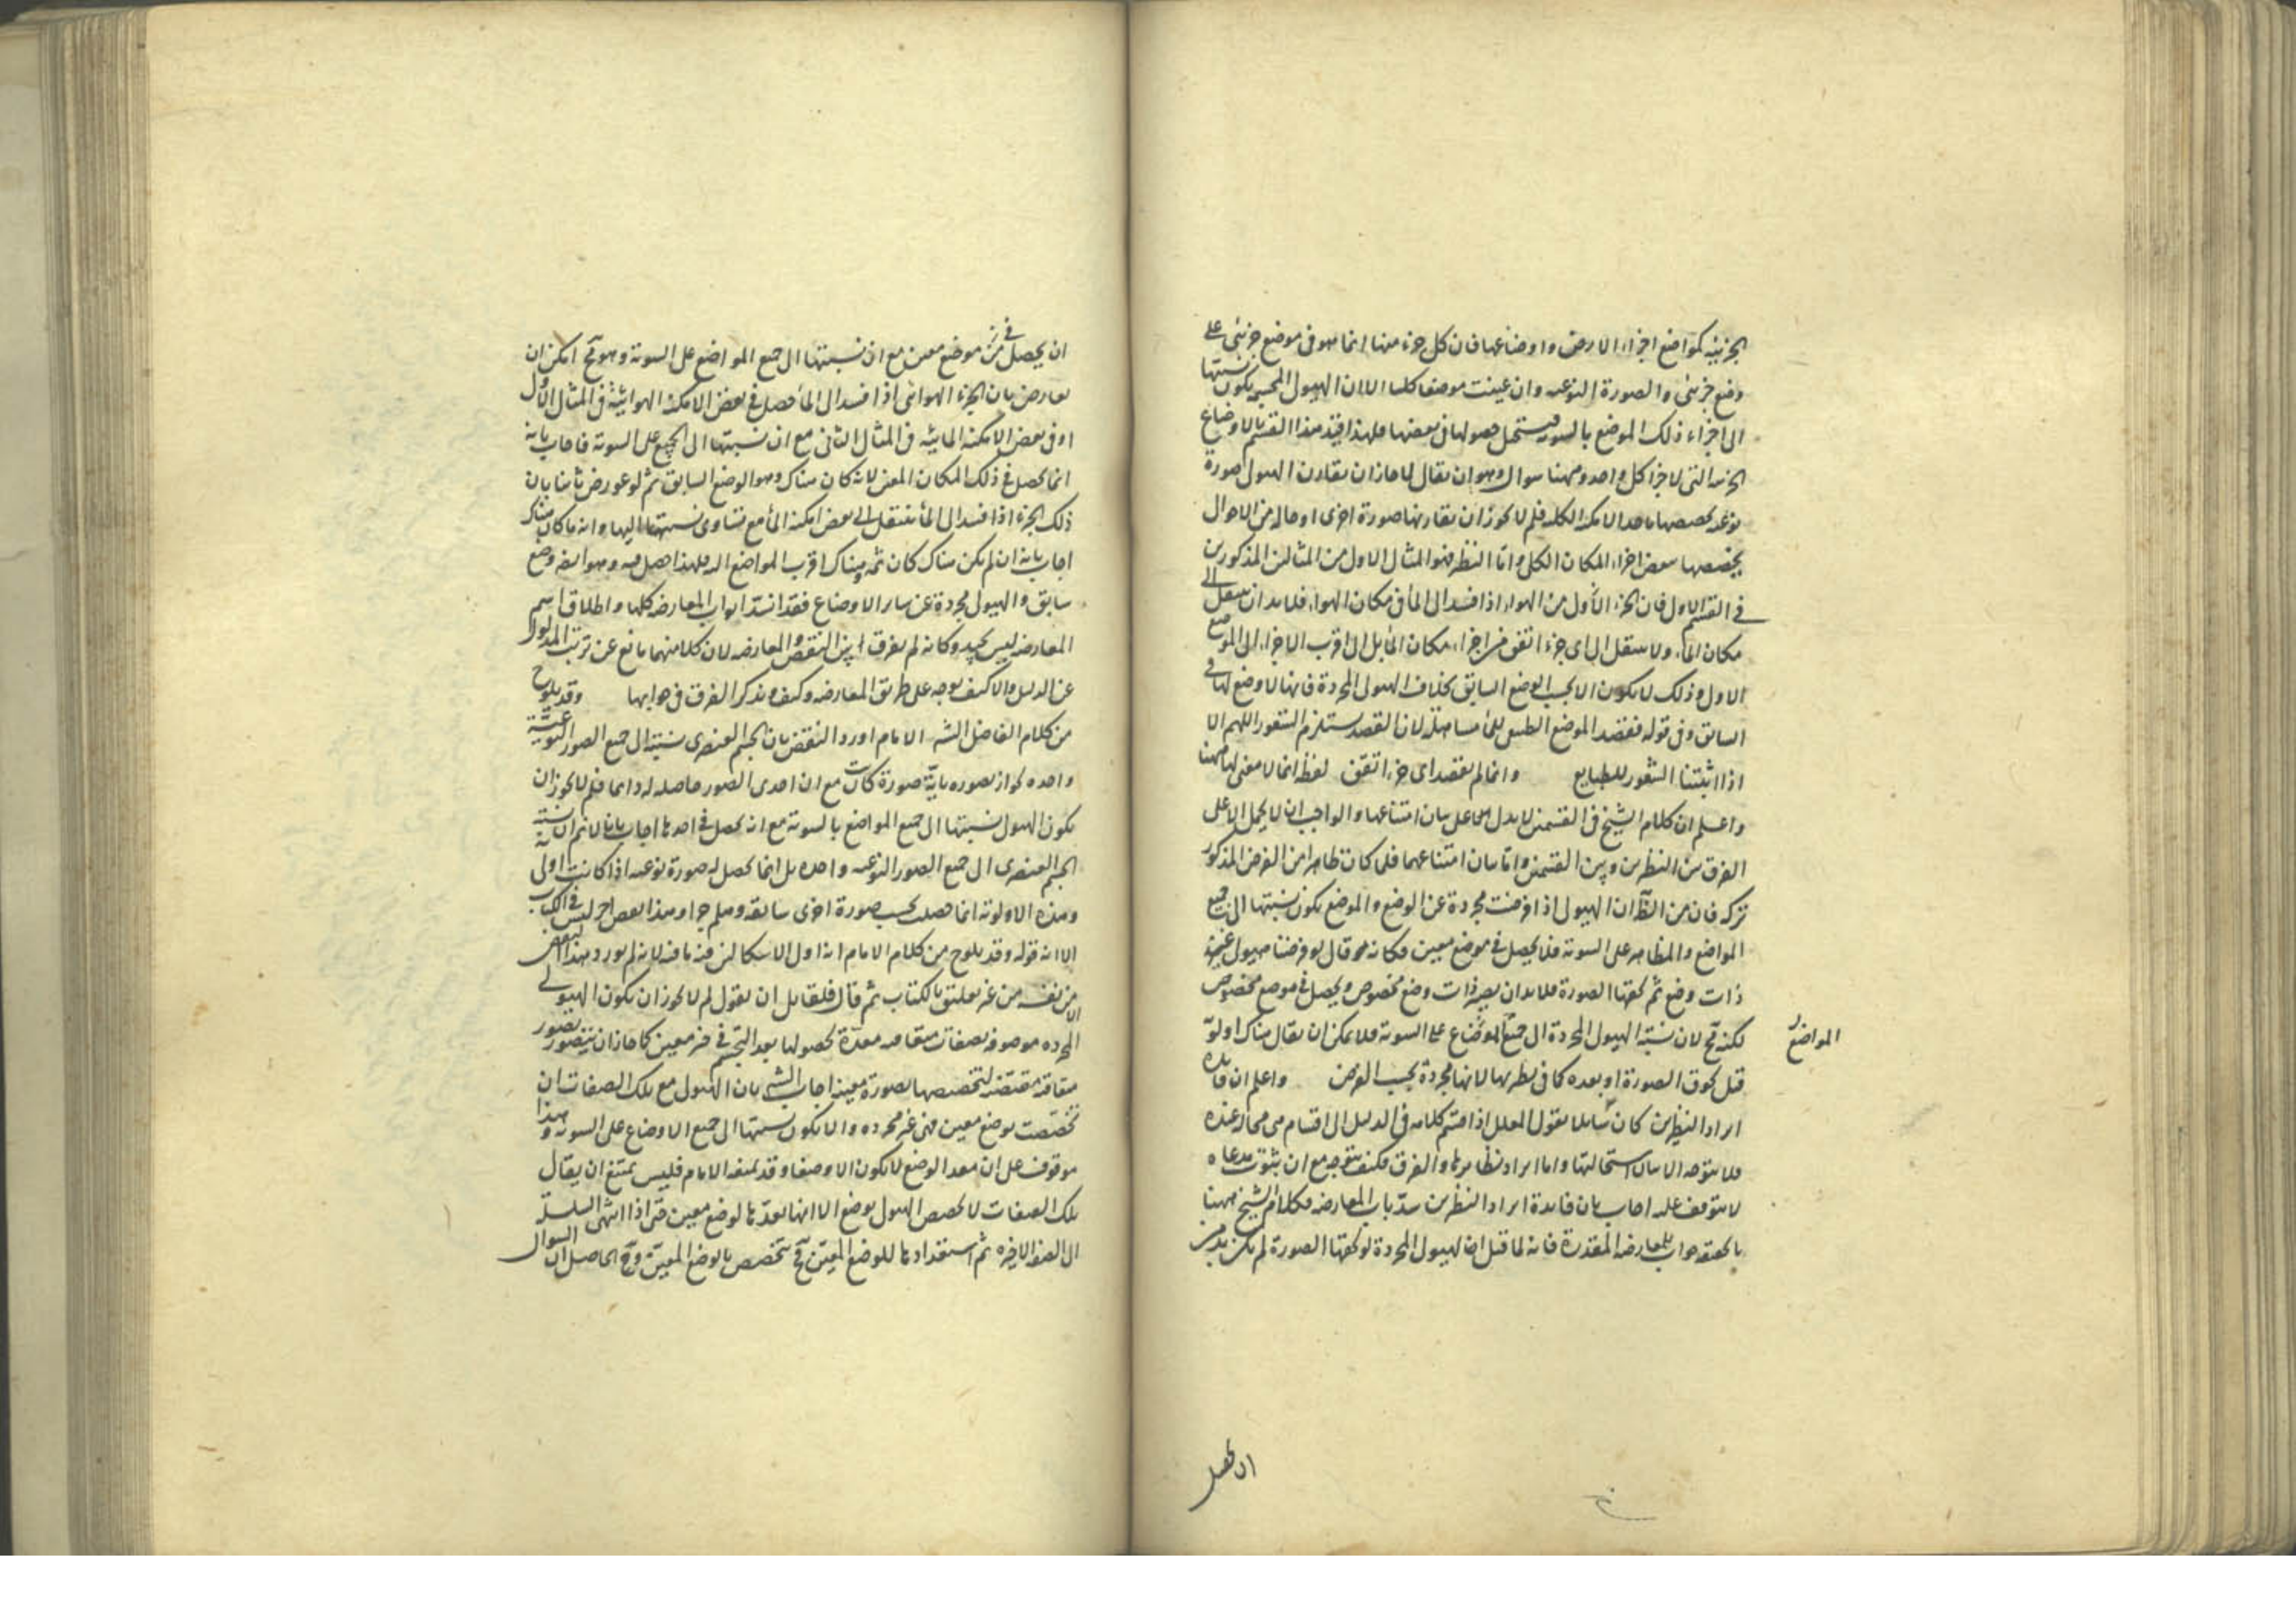 الجزئية كمواضع اجزاء الارض واوضاعها فان كل جزء منها انما هو في موضع جزئى على
وضع جزئى والصورة النوعيه وان عينت موضعا كليا الا ان الهيولى المجسمة يكون نسبتها
الى اجزاء ذلك الموضع بالسوية فيستحيل حصولها في بعضها فلهذا قيد هذا القسم بالاوضاع
الجزئيه التى لاجزاء كل واحد وههنا سوال وهو ان يقال لما جاز ان يقارن الهيولى صورة
نوعيه تخصصها باحد الامكنه الكليه فلم لا يجوز ان يقارنها صورة اخرى او حالة من الاحوال
يخصصها ببعض اجزاء المكان الكلى واما النظير فهو المثال الاول من المثالين المذكورين
في القسم الاول فان الجزء الاول من الهواء اذا فسد الى الماء في مكان الهواء فلابد ان ينتقل الى
مكان الماء ولا ينتقل الى اى جزء اتفق من اجزاء مكان الماء بل الى اقرب الاجزاء الى الموضع
الاول وذلك لا يكون الا بحسب الوضع السابق بخلاف الهيولى المجردة فانها لا وضع لها في
السابق وفي قوله فقصد الموضع الطبيعى للماء مساهلة لان القصد يستلزم الشعور اللهم الا
اذا اثبتنا الشعور للطبايع وانما لم يقصد اى جزء اتفق لفظه انما لا معنى لها ههنا
واعلم ان كلام الشيخ في القسمين لا يدل الا على بيان امتناعها والواجب ان لا يحمل الا على
الفرق بين النظيرين وبين القسمين واما بيان امتناعهما فلما كان ظاهرا من الفرض المذكور
تركه فان من الظ ان الهيولى اذا فرضت مجردة عن الوضع والموضع يكون نسبتها الى جميع
المواضع والمظاهر على السوية فلا يحصل في موضع معين فكانه قال لو فرضنا هيولى غير
ذات وضع ثم لحقتها الصورة فلابد ان يصير ذات وضع مخصوص ويحصل في موضع مخصوص
لكنه مح لان نسبة الهيولى المجردة الى جميع الموضاع على السوية فلا يمكن ان يقال هناك اولوية
المواضع
قبل لحوق الصورة او بعده كما في نظيريها لانها مجردة بحسب الفرض واعلم ان فايدة
ايراد النظيرين كان سائلا يقول المعلل اذا قسم كلامه في الدليل الى اقسام هى محال عنده
فلا يتوجه الا بيان استحالتها واما ايراد نظايرها والفرق فكيف يتوجه مع ان ثبوت مدعاه
لا يتوقف عليه اجاب بان فايدة ايراد النظيرين سد باب المعارضه فكلام الشيخ ههنا
بالحقيقه جواب للمعارضه المقدرة فانه لما قيل ان الهيولى المجردة لو لحقتها الصورة لم يكن بد من
ان يحصل
ان يحصل في موضع معين مع ان نسبتها الى جميع المواضع على السوية وهو مح امكن ان
يعارض بان الجزء الهوائى اذا فسد الى الماء حصل في بعض الامكنة الهوائية في المثال الاول
او في بعض الامكنه المائيه في المثال الثانى مع ان نسبتها الى الجميع على السوية فاجاب بانه
انما يحصل في ذلك المكان المعين لانه كان هناك وهو الوضع السابق ثم لو عورض ثانيا بان
ذلك الجزء اذا فسد الى الماء ينتقل الى بعض امكنه الماء مع تساوى نسبتها اليها وانه ما كان هناك
اجاب بانه ان لم يكن هناك كان ثمه وهناك اقرب المواضع اليه فلهذا حصل فيه وهو ايضا وضع
سابق والهيولى مجردة عن ساير الاوضاع فقد انسد ابواب المعارضه كلها واطلاق اسم
المعارضه ليس بجيد وكانه لم يفرق بين النقض والمعارضه لان كلا منهما مانع عن ترتب المدلول
عن الدليل والا كيف يوجه على طريق المعارضه وكيف يذكر الفرق في جوابها وقد يلوح
من كلام الفاضل الشه الامام اورد النقض بان الجسم العنصرى نسبته الى جميع الصور النوعية
واحده لجواز تصوره باية صورة كانت مع ان احدى الصور حاصله له دائما فلم لا يجوز ان
يكون الهيولى نسبتها الى جميع المواضع بالسوية مع انه يحصل في احدها اجاب بانا لا نم ان نسبة
الجسم العنصرى الى جميع الصور النوعيه واحده بل انما يحصل له صورة نوعيه اذا كانت اولى به
وهذه الاولوية انما حصلت بحسب صورة اخرى سابقه وهلم جرا وهذا بعض اخر ليس في الكتاب
الا انه قوله وقد يلوح من كلام الامام انه اول الاشكالين فيه ما فيه لانه لم يورد هذا النقض
الا من نفسه من غير تعلق بالكتاب ثم قال فلقايل ان يقول لم لا يجوز ان يكون الهيولى
المجرده موصوفه بصفات متعاقبه معدة لحصولها بعد التجسم في حيز معين كما جاز ان يتصور بصور
متعاقبه مقتضيه لتخصصها بصورة معينه اجاب الشه بان الهيولى مع تلك الصفات ان
تخصصت بوضع معين فهى غير مجرده والا يكون نسبتها الى جميع الاوضاع على السوية وهذا
موقوف على ان معد الوضع لا يكون الا وضعا وقد يمنعه الامام فليس يمتنع ان يقال
تلك الصفات لا تخصص الهيولى بوضع الا انها تعدها لوضع معين حتى اذا انتهى السلسلة
الى الصفة الاخيره ثم استعدادها للوضع المعين فح يتخصص بالوضع المعين وح الحاصل ان السوال